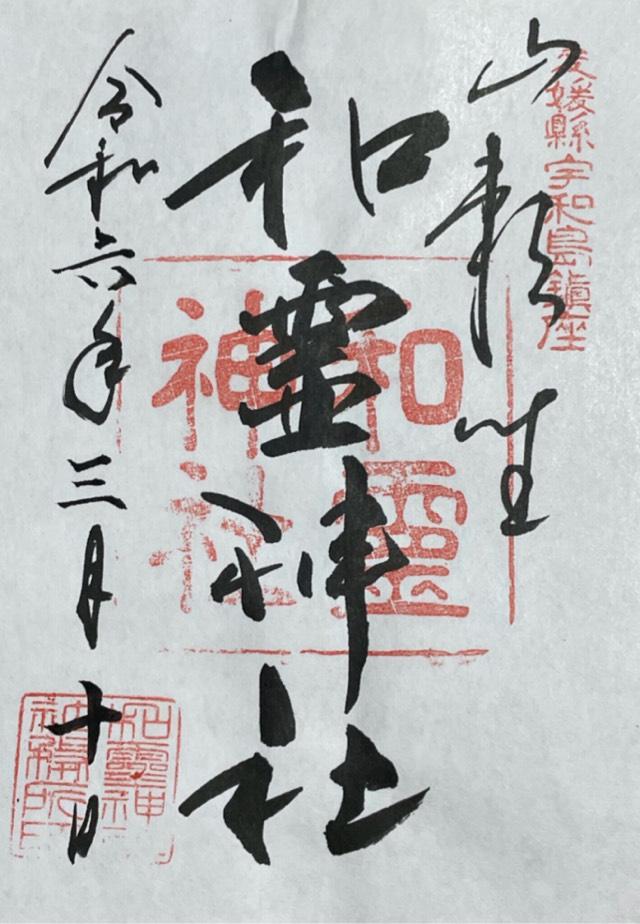 愛媛縣宇和島鎮座
山頼
和霊神社
和靈神社
令和六年三月十日
和靈神
社務所印